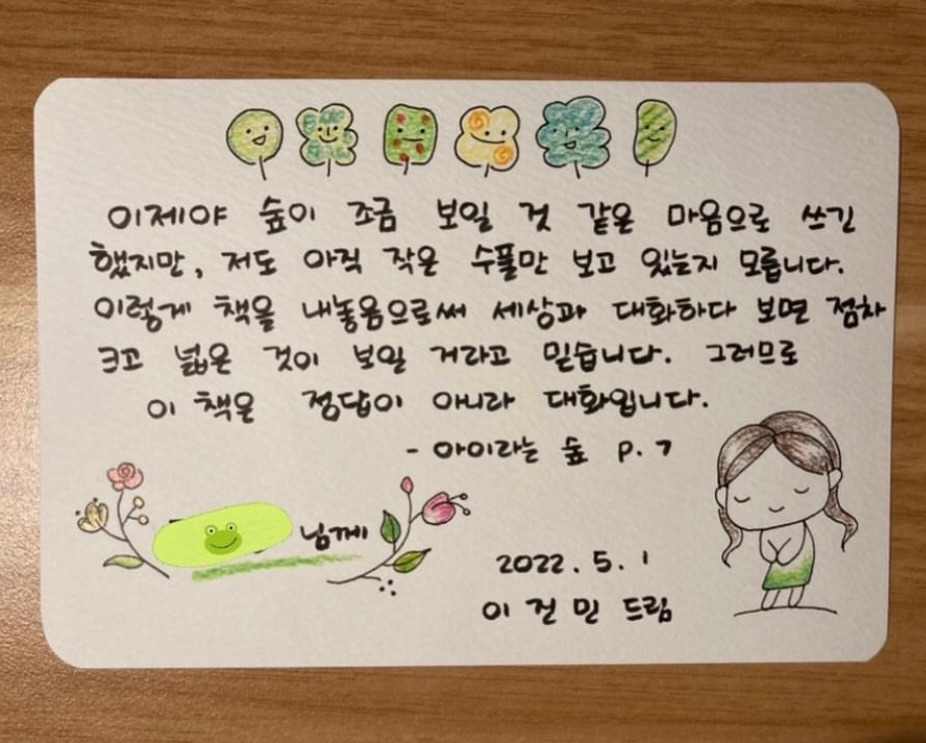 이제야 숲이 조금 보일 것 같은 마음으로 쓰긴
했지만, 저도 아직 작은 수풀만 보고 있는지 모릅니다.
이렇게 책을 내놓음으로써 세상과 대화하다 보면 점차
크고 넓은 것이 보일 거라고 믿습니다. 그러므로
이 책은 정답이 아니라 대화입니다.
- 아이라는 숲 p. 7
님께
2022. 5. 1
이진민 드림